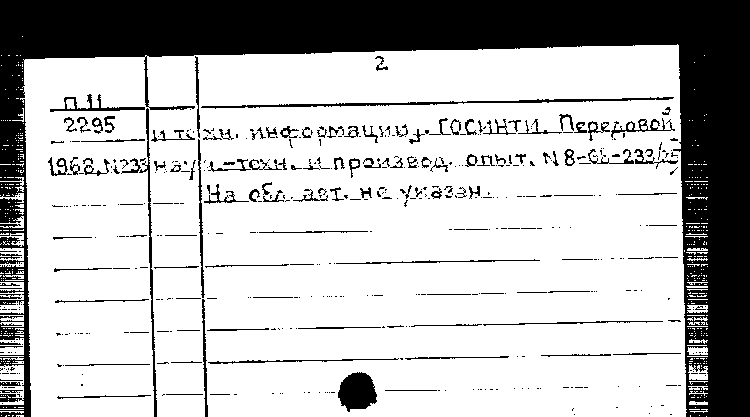 2
П 11
2295 и техн. информации). ГОСИНТИ. Передовой
1968, N233 науч.-техн. и производ. опыт. N 8-68-233/25
На обл. авт. не указан.